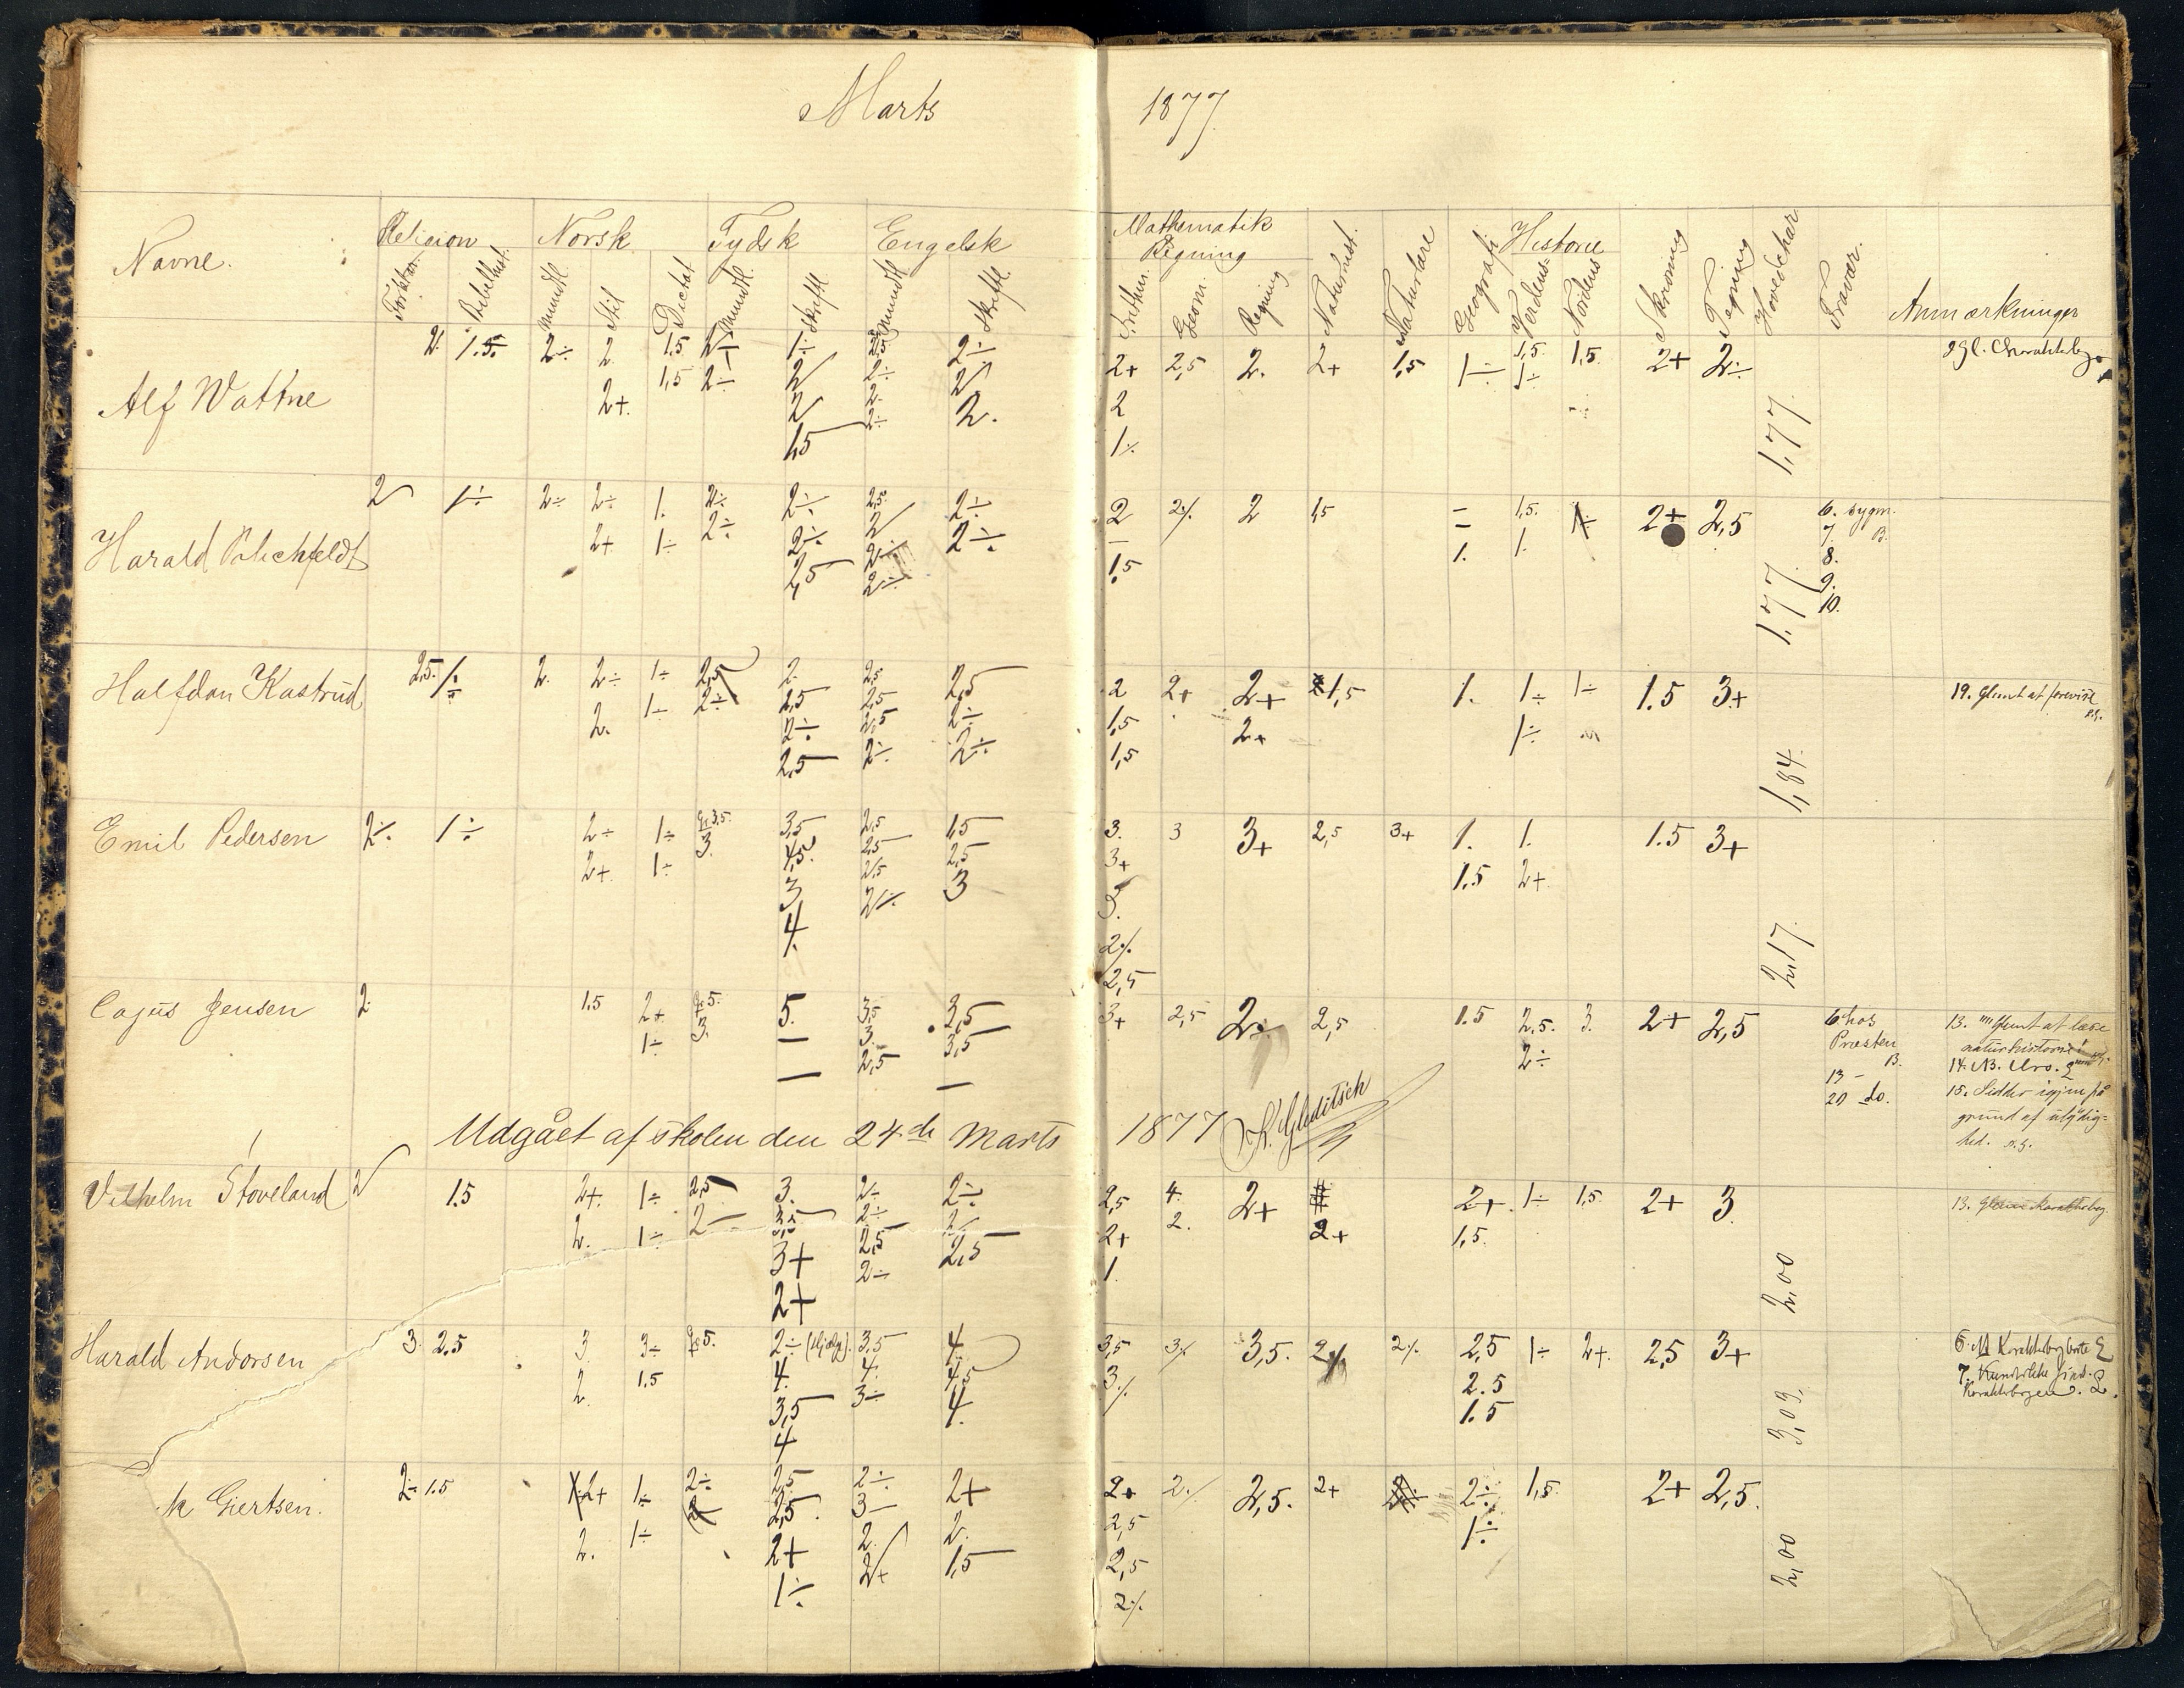 Marts 1877
Navne. Religion Norsk Tydsk Engelsk Mathematik Historie
Regning
Forklar. Bibelhist. mundtl. Stil Dictat mundtl. skriftl. mundtl. skriftl. Arithm. Geom. Regning Naturhist. Naturlære Geografi Verdens Nordens Skrivning Tegning Hovedchar. Fravær. Anmærkninger
Alf Wattne 2. 1.5 2÷ 2. 1.5 2÷ 1÷ 2,5 2÷ 2+ 2,5 2. 2+ 1,5 1÷ 1,5. 1,5. 2+ 2÷ 1,77.
2+. 1,5 2÷ 2 2÷ 2 2 1÷
2 2. 2. 1÷
1,5 2÷
Harald 2 1÷ 2÷ 2÷ 1. 2÷ 2÷ 2,5. 2÷ 2 2÷ 2 1,5 1,5. 2+ 2,5 1,77. 6. sygm.
2+ 1÷ 2÷ 2÷ 2 2÷. 1,5 1. 1. 7. B.
2,5 2÷ 8.
2÷ 9.
10.
Halfdan Kastrud 2,5. 1÷ 2. 2÷ 1÷ 2,5 2. 2,5 2,5 2 2+ 2+ 1,5 1. 1÷ 1÷ 1.5 3+ 1,84. 19. Glemt at forevise
2. 1÷ 2÷ 2,5 2,5 2÷ 1,5 2+ 1÷
2÷ 2,5 2÷ 1,5
2,5 2÷
Emil Pedersen 2÷. 1÷ 2÷ 1÷ 3,5 2,5 1,5 3. 3 3+ 2,5 3+ 1. 1. 1.5 3+ 2,17.
2+. 1÷ 3. 4,5. 2,5 2,5 3+ 1.5 2+
3 2,5 3 3.
4. 2÷ 2÷
2,5
Cajus Jensen 2 1.5 2+ 5. 3,5 3,5 3+ 2,5 2÷ 2,5 1.5 2.5. 3. 2+ 2,5 6 hos 13. Glemt at læse
1÷ 3. — 3. 3,5 2÷ Præsten naturhistorie!
— 2,5 — B. 14. NB. Uro.
13 – 15. Sidder igjen på
20 do. grund af ulydig-
hed.
Udgået af skolen den 24de Marts 1877 K. Gleditsch
Vilhelm Stoveland 2 1.5 2+. 1÷ 2,5 3. 2÷ 2÷ 2,5 4. 2+ 2+. 1÷ 1,5. 2+ 3. 2,00 13.
2. 1÷ 2 3,5 2÷ 2÷ 2+ 2. 2+ 1,5.
3+ 2,5 2,5 1.
2+ 2÷
Harald Andersen 3. 2.5 3. 3÷ 2÷ 3,5 4. 3,5 3÷ 3,5. 2÷ 2÷ 2,5 1÷ 2+. 2,5 3+ 3,09.
2. 1.5 4. 4. 4,5 3÷ 2.5
3,5 3÷ 4. 1.5
4
Giertsen. 2÷ 1.5 2+ 1÷ 2÷ 2,5 2÷ 2+ 2+ 2÷ 2,5. 2+ 2÷ 1,5. 2+ 2,5. 2,00
2. 1÷ 2,5. 3 2. 2,5 1÷
2+ 2. 1,5 2,5
1÷ 2+ 2÷